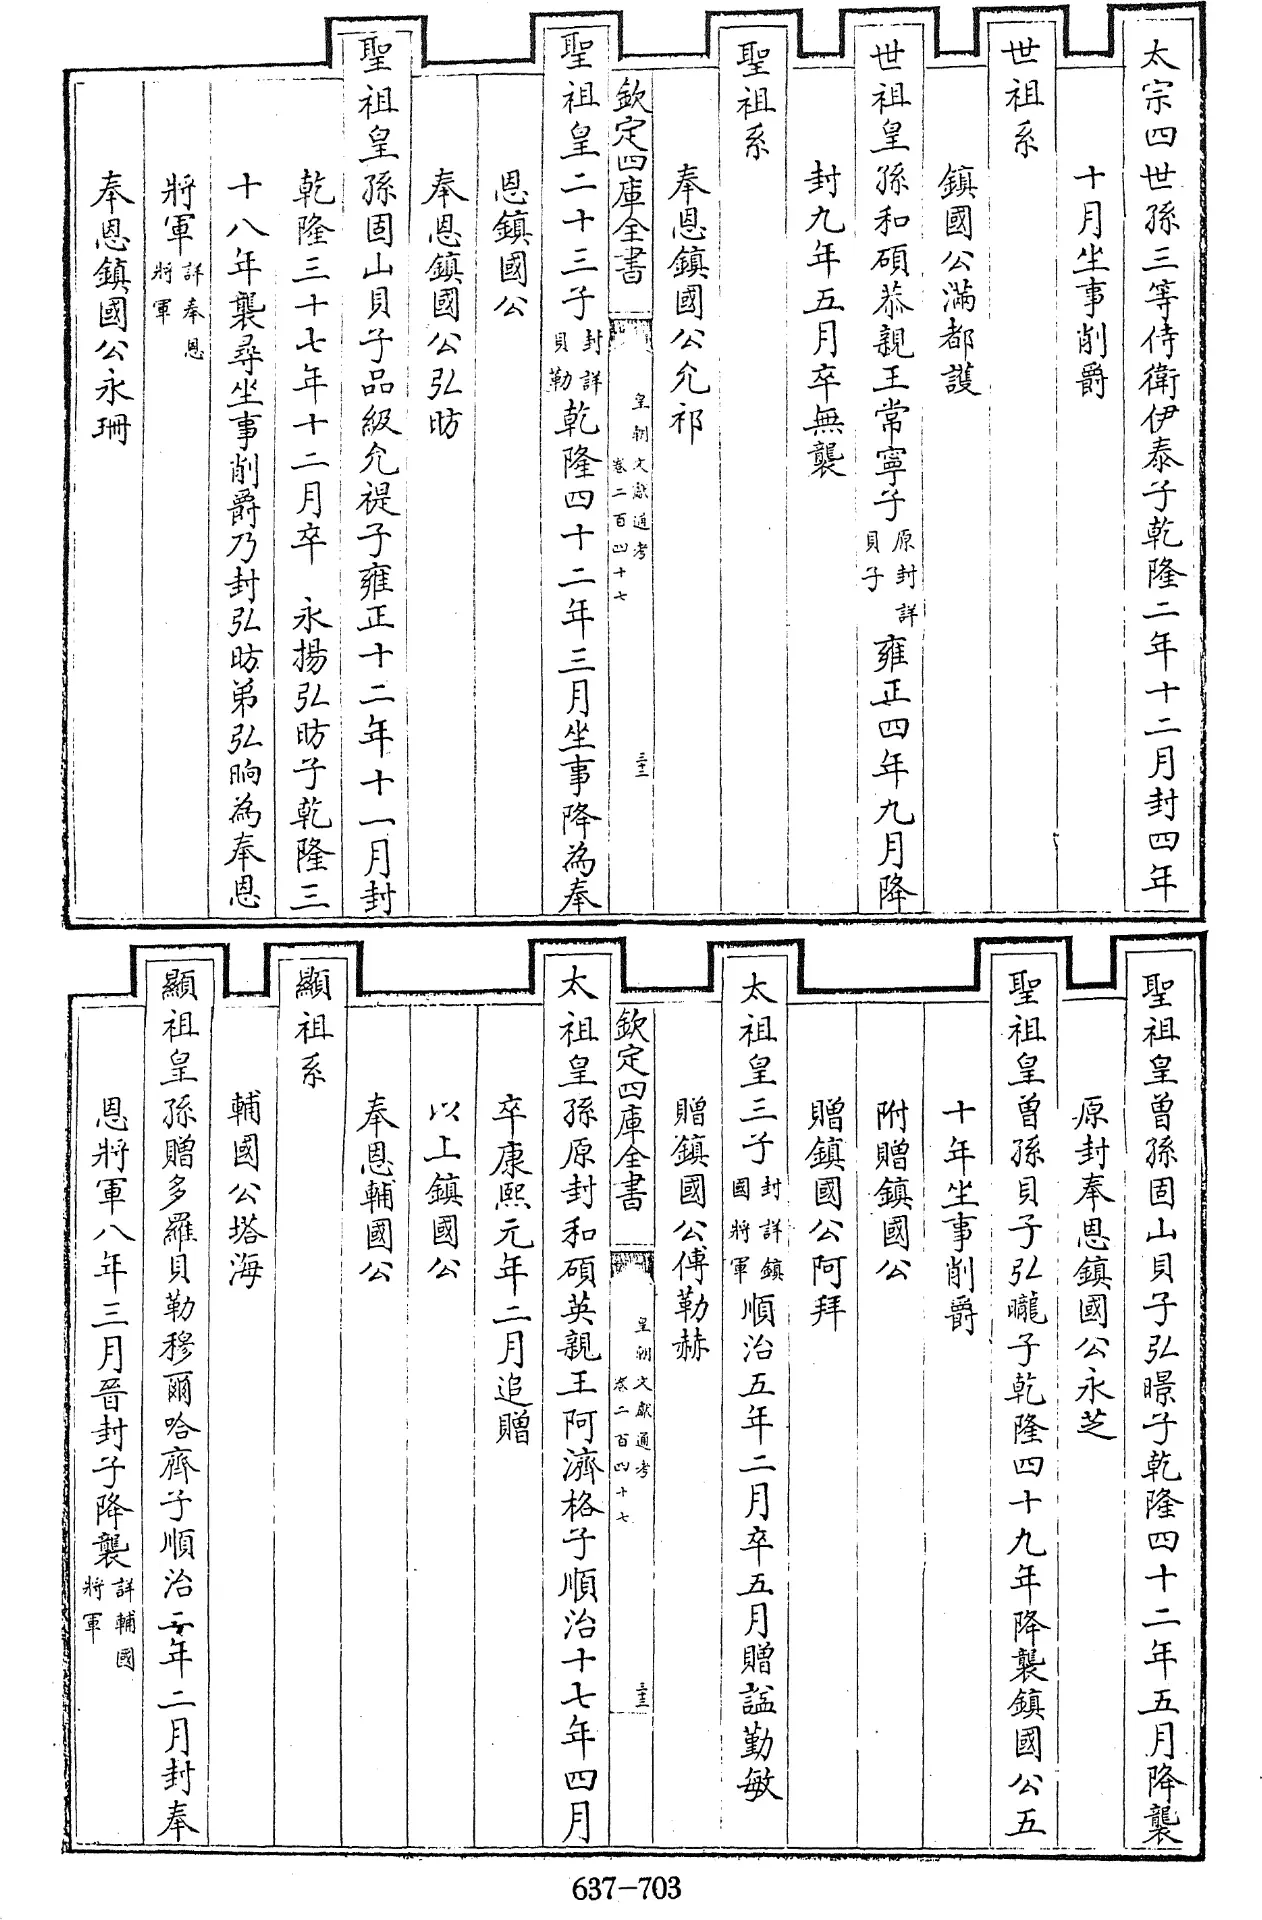 太宗四世孫三等侍衛伊泰子乾隆二年十二月封四年
十月坐事削爵
世祖系
鎮國公滿都護
世祖皇孫和碩恭親王常寧子原封詳貝子雍正四年九月降
封九年五月卒無襲
聖祖系
奉恩鎮國公允祁
欽定四庫全書 皇朝文獻通考 卷二百四十七 三十二
聖祖皇二十三子封詳貝勒乾隆四十二年三月坐事降為奉
恩鎮國公
奉恩鎮國公弘昉
聖祖皇孫固山貝子品級允禔子雍正十二年十一月封
乾隆三十七年十二月卒 永揚弘昉子乾隆三
十八年襲尋坐事削爵乃封弘昉弟弘晌為奉恩
將軍詳奉恩將軍
奉恩鎮國公永珊
聖祖皇曾孫固山貝子弘暻子乾隆四十二年五月降襲
原封奉恩鎮國公永芝
聖祖皇曾孫貝子弘曨子乾隆四十九年降襲鎮國公五
十年坐事削爵
附贈鎮國公
贈鎮國公阿拜
太祖皇三子封詳鎮國將軍順治五年二月卒五月贈諡勤敏
贈鎮國公傅勒赫
欽定四庫全書 皇朝文獻通考 卷二百四十七 三十三
太祖皇孫原封和碩英親王阿濟格子順治十七年四月
卒康熙元年二月追贈
以上鎮國公
奉恩輔國公
顯祖系
輔國公塔海
顯祖皇孫贈多羅貝勒穆爾哈齊子順治二年二月封奉
恩將軍八年三月晉封子降襲詳輔國將軍
637-703